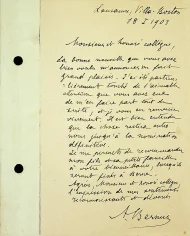 Lausanne, Villa Boston
18/I. 1903
Monsieur et honoré collègue,
La bonne nouvelle que vous avez
bien voulu m'annoncer m'a fait
grand plaisir. J'ai été particu-
lièrement touché de l'aimable
attention que vous avez eue
de m'en faire part tout de
suite, et je vous en remercie
vivement. Il est bien entendu
que la chose restera entre
nous jusqu'à la nomination
définitive.
Je me permets de recommander
mon fils et sa petite famille
à votre bienveillance lorsqu'ils
seront fixés à Berne.
Agréez, Monsieur et honoré collègue,
l'expression de mes sentiments
reconnaissants et dévoués.